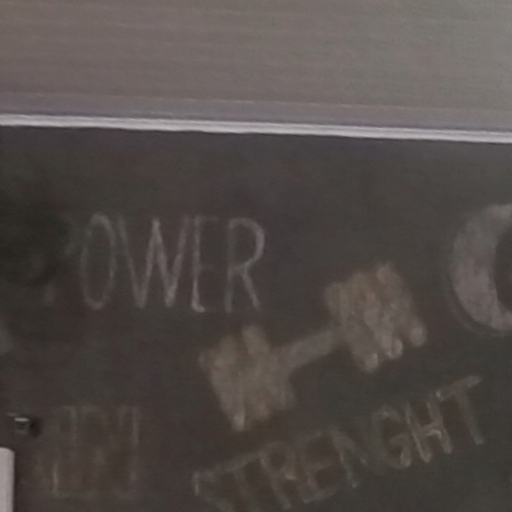 POWER
STRENGHT